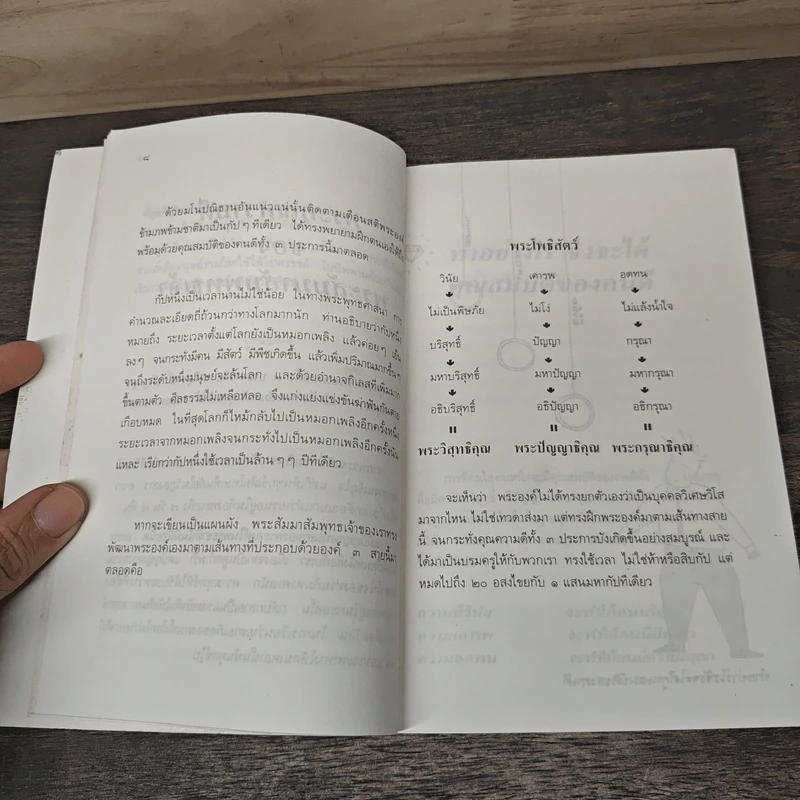 ๘
ด้วยมโนปณิธานอันแน่วแน่นั้นติดตามเตือนสติพระองค์
ข้ามภพข้ามชาติมาเป็นกัปๆ ทีเดียว ได้ทรงพยายามฝึกตนเองให้
พร้อมด้วยคุณสมบัติของคนดีทั้ง ๓ ประการนี้มาตลอด
กัปหนึ่งเป็นเวลานานไม่ใช่น้อย ในทางพระพุทธศาสนา การ
คำนวณละเอียดถี่ถ้วนกว่าทางโลกมากนัก ท่านอธิบายว่ากัปหนึ่ง
หมายถึง ระยะเวลาตั้งแต่โลกยังเป็นหมอกเพลิง แล้วค่อยๆ เย็น
ลงๆ จนกระทั่งมีคน มีสัตว์ มีพืชเกิดขึ้น แล้วเพิ่มปริมาณมากขึ้นๆ
จนถึงระดับหนึ่งมนุษย์จะล้นโลก และด้วยอำนาจกิเลสที่เพิ่มมาก
ขึ้นตามตัว ศีลธรรมไม่เหลือหลอ จึงแก่งแย่งแข่งขันฆ่าฟันกันตาย
เกือบหมด ในที่สุดโลกก็ไหม้กลับไปเป็นหมอกเพลิงอีกครั้งหนึ่ง
ระยะเวลาจากหมอกเพลิงจนกระทั่งไปเป็นหมอกเพลิงอีกครั้งนั้น
แหละ เรียกว่ากัปหนึ่งใช้เวลาเป็นล้านๆๆ ปีทีเดียว
หากจะเขียนเป็นแผนผัง พระสัมมาสัมพุทธเจ้าของเราทรง
พัฒนาพระองค์เองมาตามเส้นทางที่ประกอบด้วยองค์ ๓ สายนี้มา
ตลอดคือ
พระโพธิสัตว์
วินัย เคารพ อดทน
ไม่เป็นพิษภัย ไม่โง่ ไม่แล้งน้ำใจ
บริสุทธิ์ ปัญญา กรุณา
มหาบริสุทธิ์ มหาปัญญา มหากรุณา
อธิบริสุทธิ์ อธิปัญญา อธิกรุณา
= = =
พระวิสุทธิคุณ พระปัญญาธิคุณ พระกรุณาธิคุณ
จะเห็นว่า พระองค์ไม่ได้ทรงยกตัวเองว่าเป็นบุคคลวิเศษวิโส
มาจากไหน ไม่ใช่เทวดาส่งมา แต่ทรงฝึกพระองค์มาตามเส้นทางสาย
นี้ จนกระทั่งคุณความดีทั้ง ๓ ประการบังเกิดขึ้นอย่างสมบูรณ์ และ
ได้มาเป็นบรมครูให้กับพวกเรา ทรงใช้เวลา ไม่ใช่ห้าหรือสิบกัป แต่
หมดไปถึง ๒๐ อสงไขยกับ ๑ แสนมหากัปทีเดียว